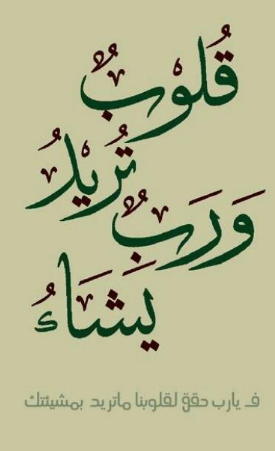 قُلُوْبٌ
تُرِيْدُ
وَرَبٌ
يَشَاءُ
فـ يارب حقق لقلوبنا ماتريد بمشيئتك